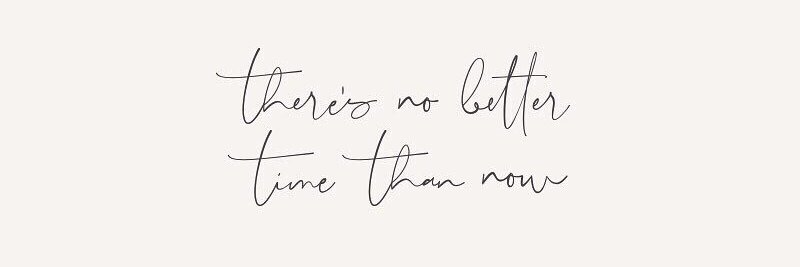 there's no better
time than now